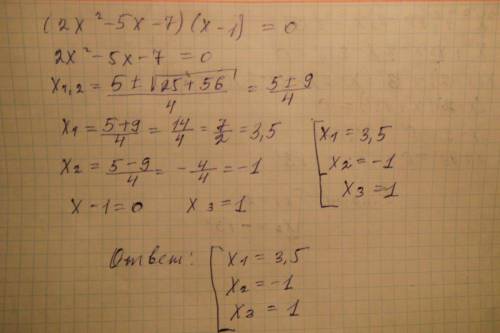 (2x²-5x-7)(x-1) = 0
2x²-5x-7 = 0
x₁,₂ = (5±√(25+56))/4 = (5±9)/4
x₁ = (5+9)/4 = 14/4 = 7/2 = 3,5
x₂ = (5-9)/4 = -4/4 = -1
x-1=0 x₃=1
[x₁ = 3,5
x₂ = -1
x₃ = 1
Ответ: [x₁ = 3,5
x₂ = -1
x₃ = 1